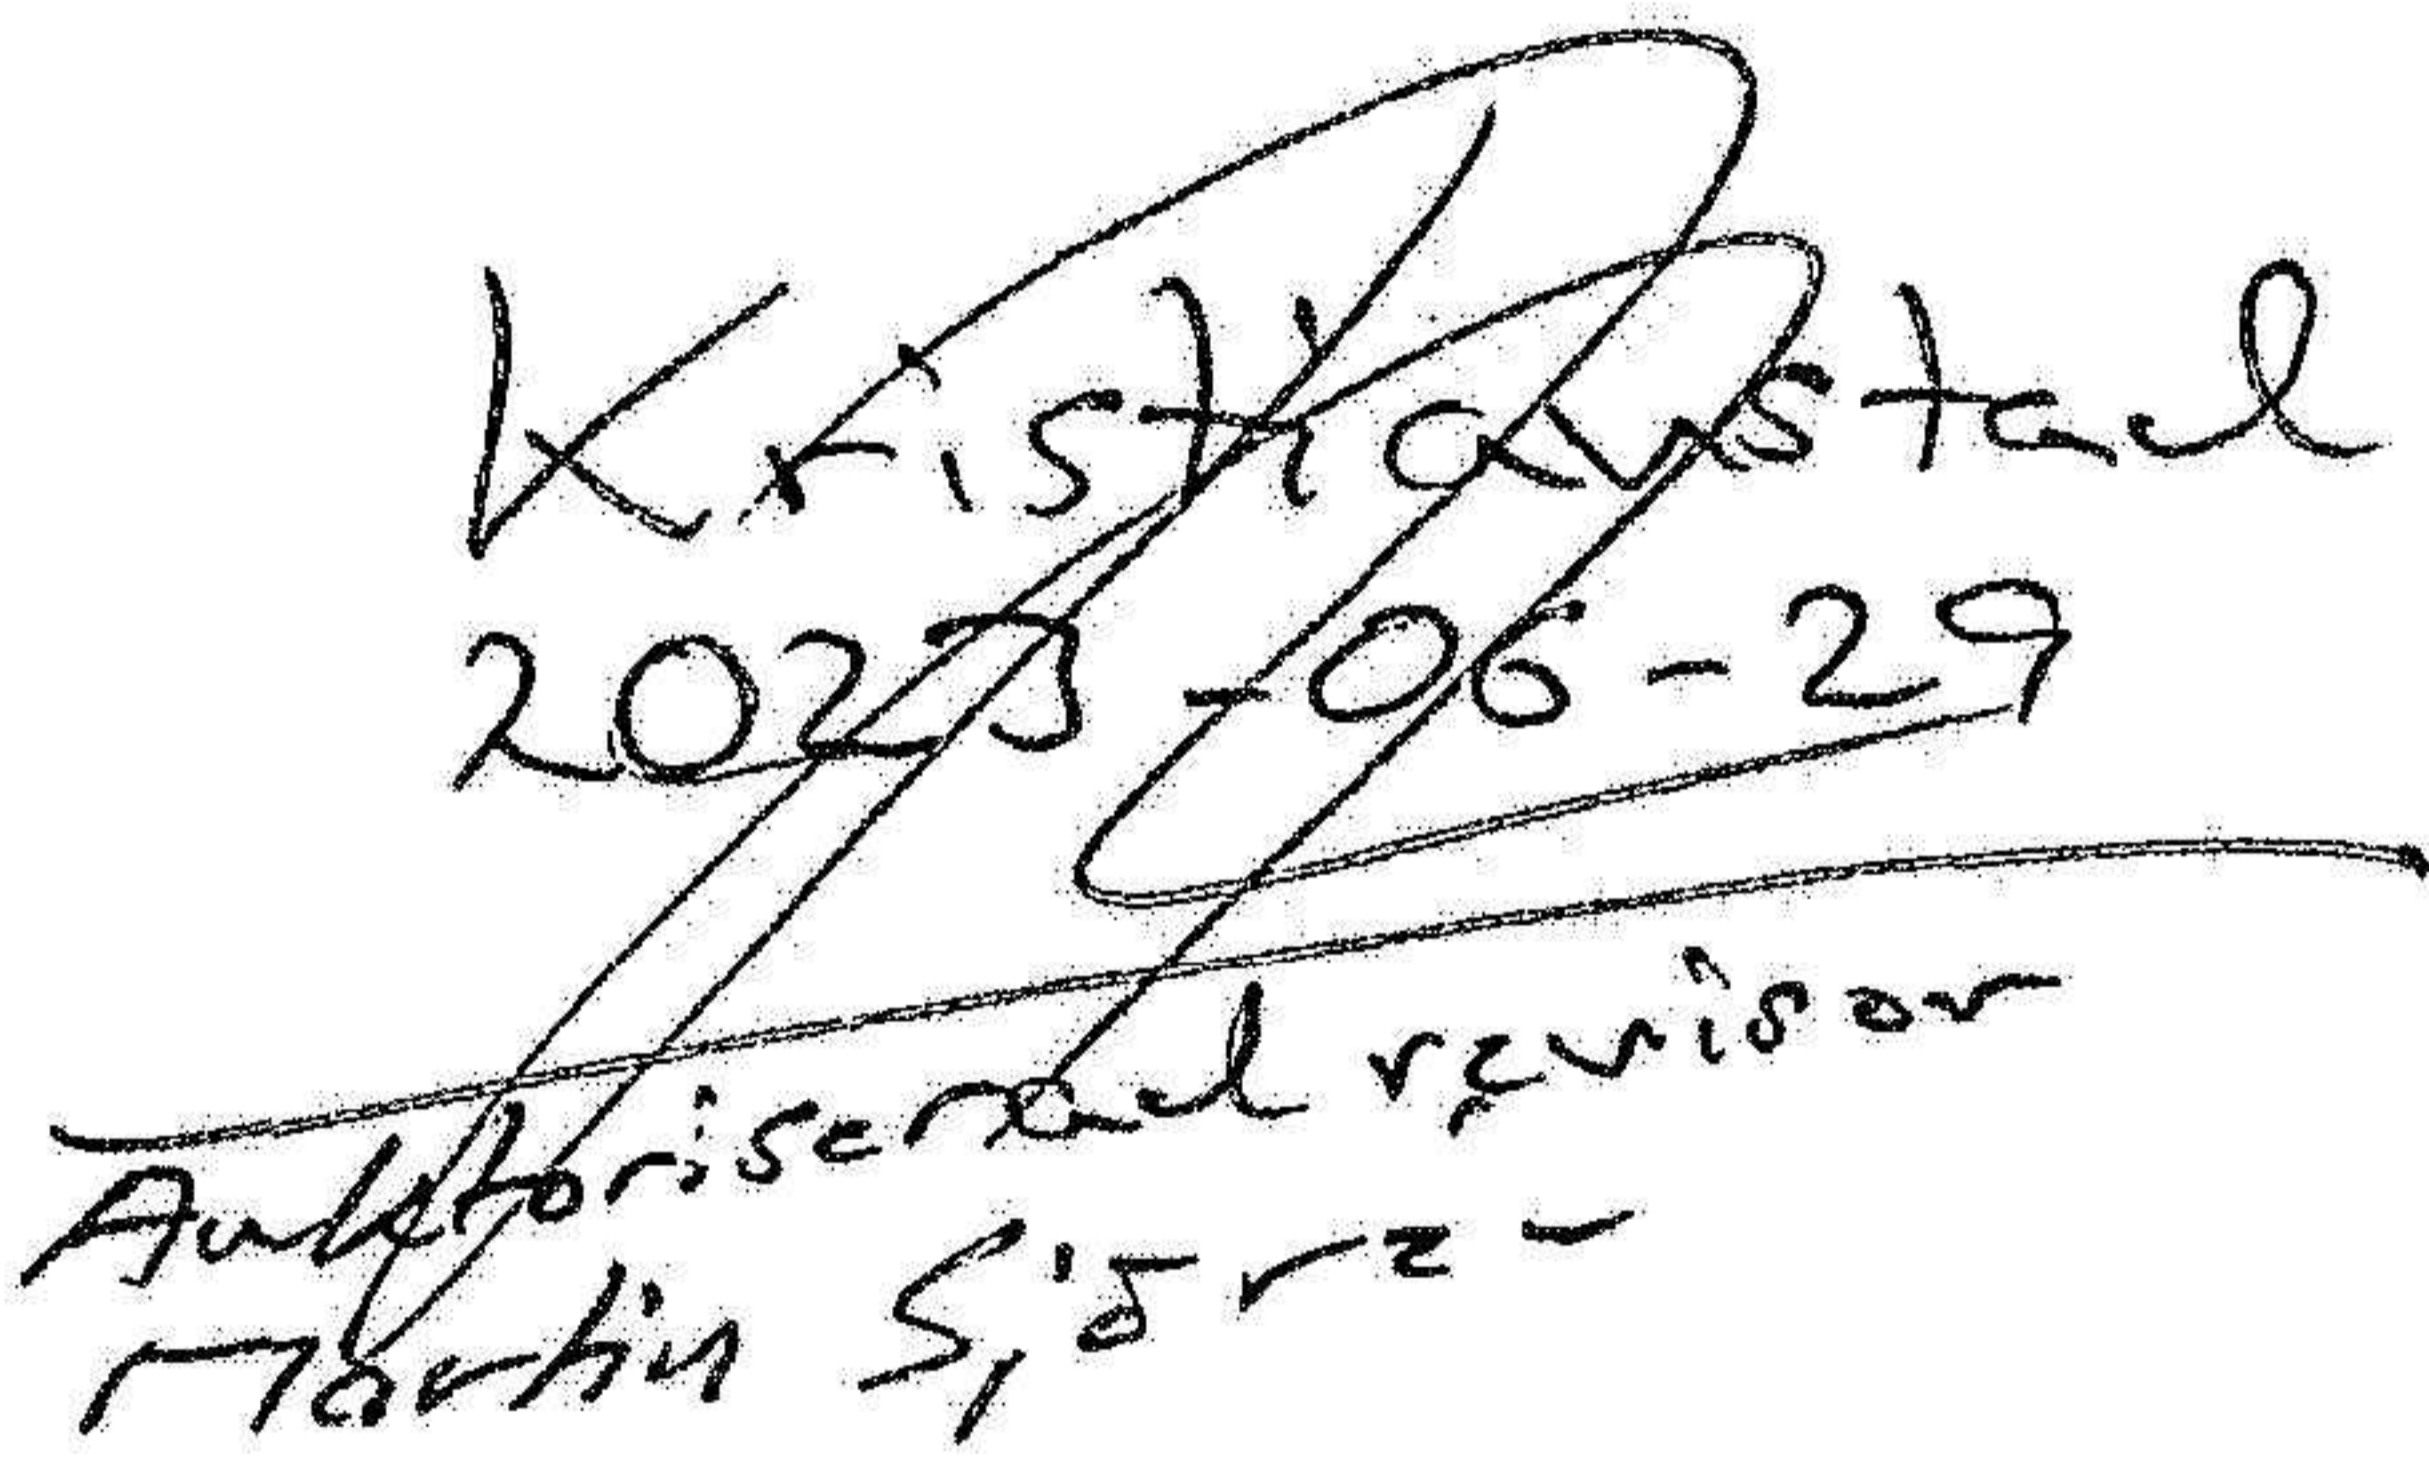 Kristianstad
2023-06-29
Auktoriserad revisor
Martin